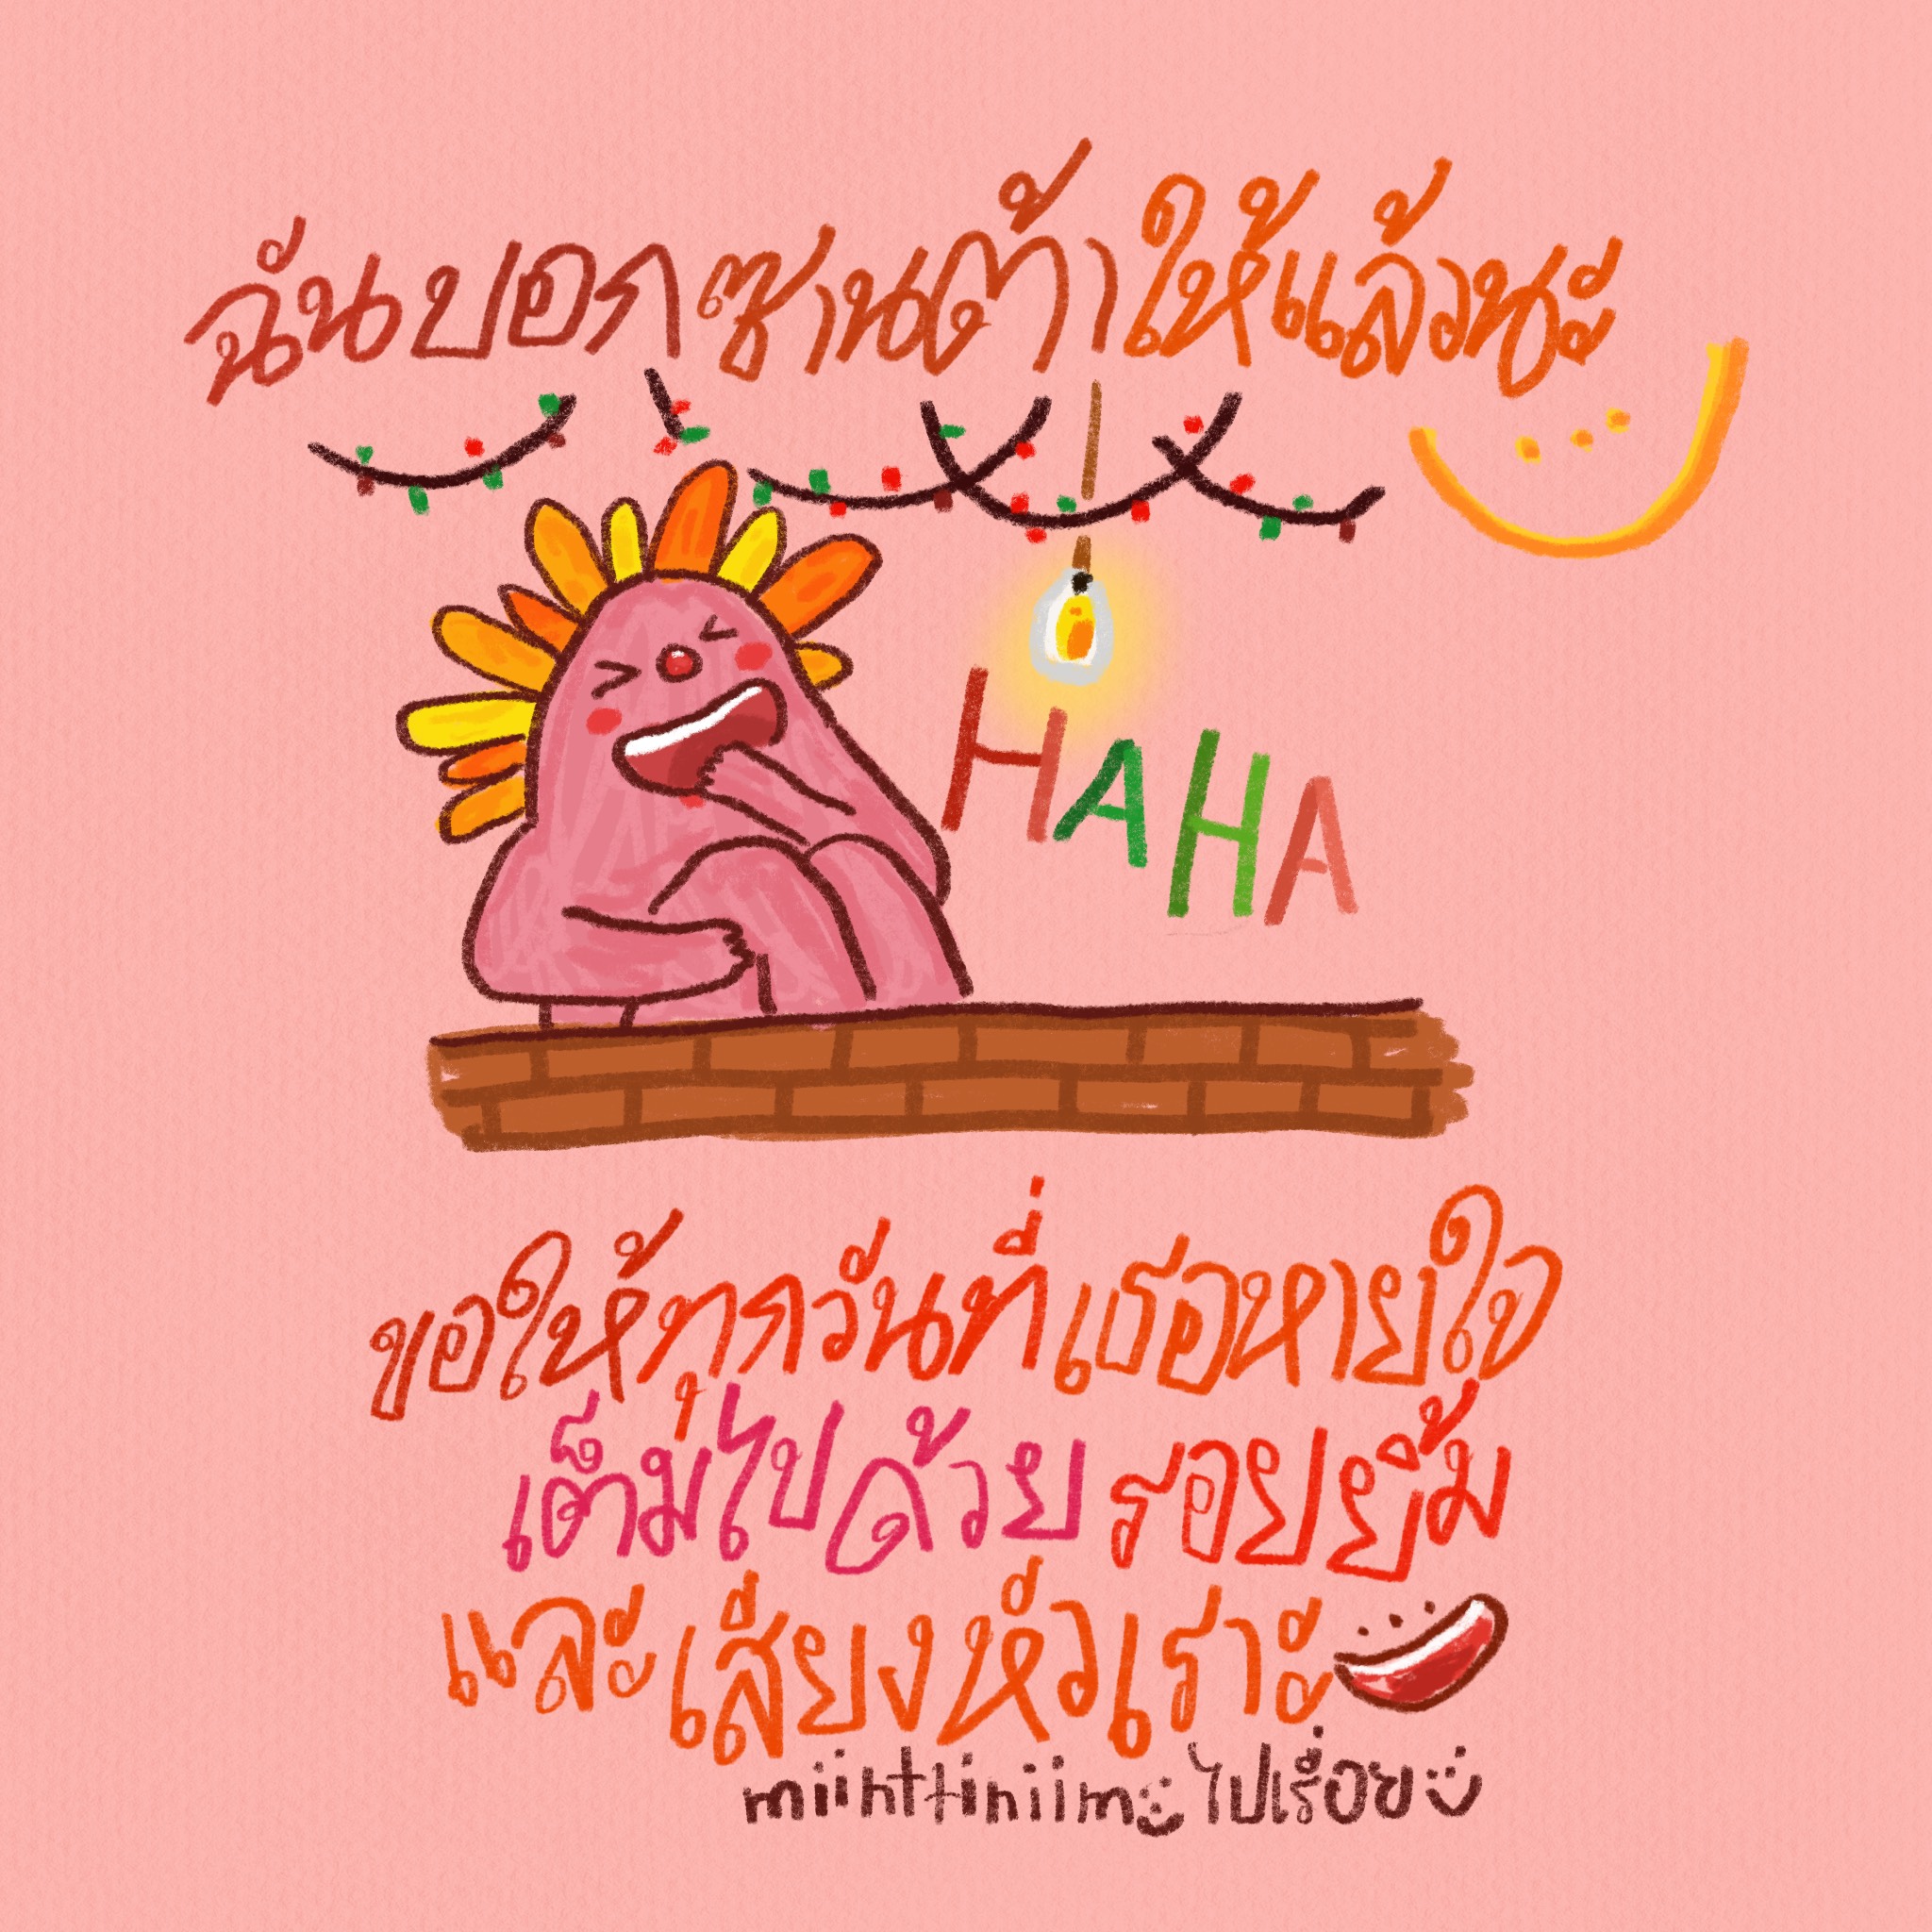 ฉันบอกซานต้าให้แล้วนะ
HAHA
ขอให้ทุกวันที่เธอหายใจ
เต็มไปด้วย รอยยิ้ม
และเสียงหัวเราะ
miinttiniim ไปเรื่อย